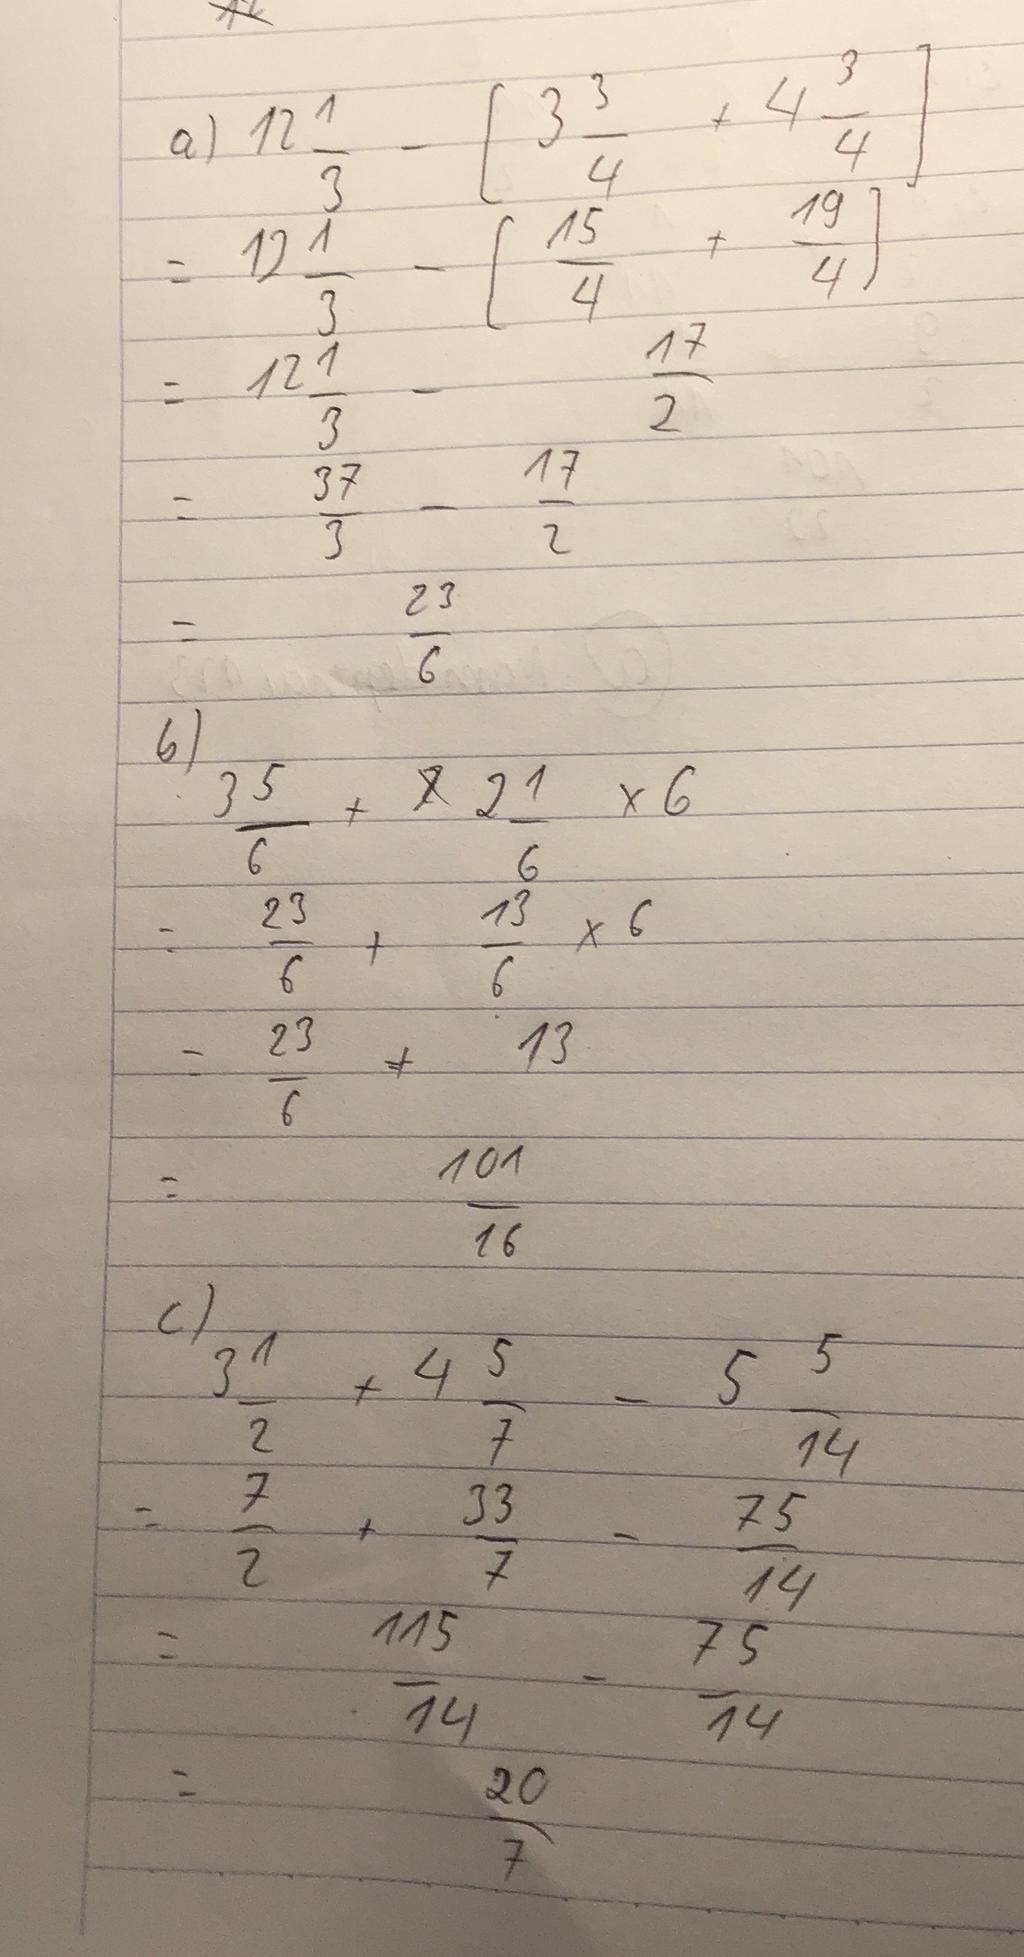 a) 12 1/3 - [ 3 3/4 + 4 3/4 ]
= 12 1/3 - [ 15/4 + 19/4 ]
= 12 1/3 - 17/2
= 37/3 - 17/2
= 23/6
b)
3 5/6 + 2 1/6 × 6
= 23/6 + 13/6 × 6
= 23/6 + 13
= 101/16
c)
3 1/2 + 4 5/7 - 5 5/14
= 7/2 + 33/7 - 75/14
= 115/14 - 75/14
= 20/7